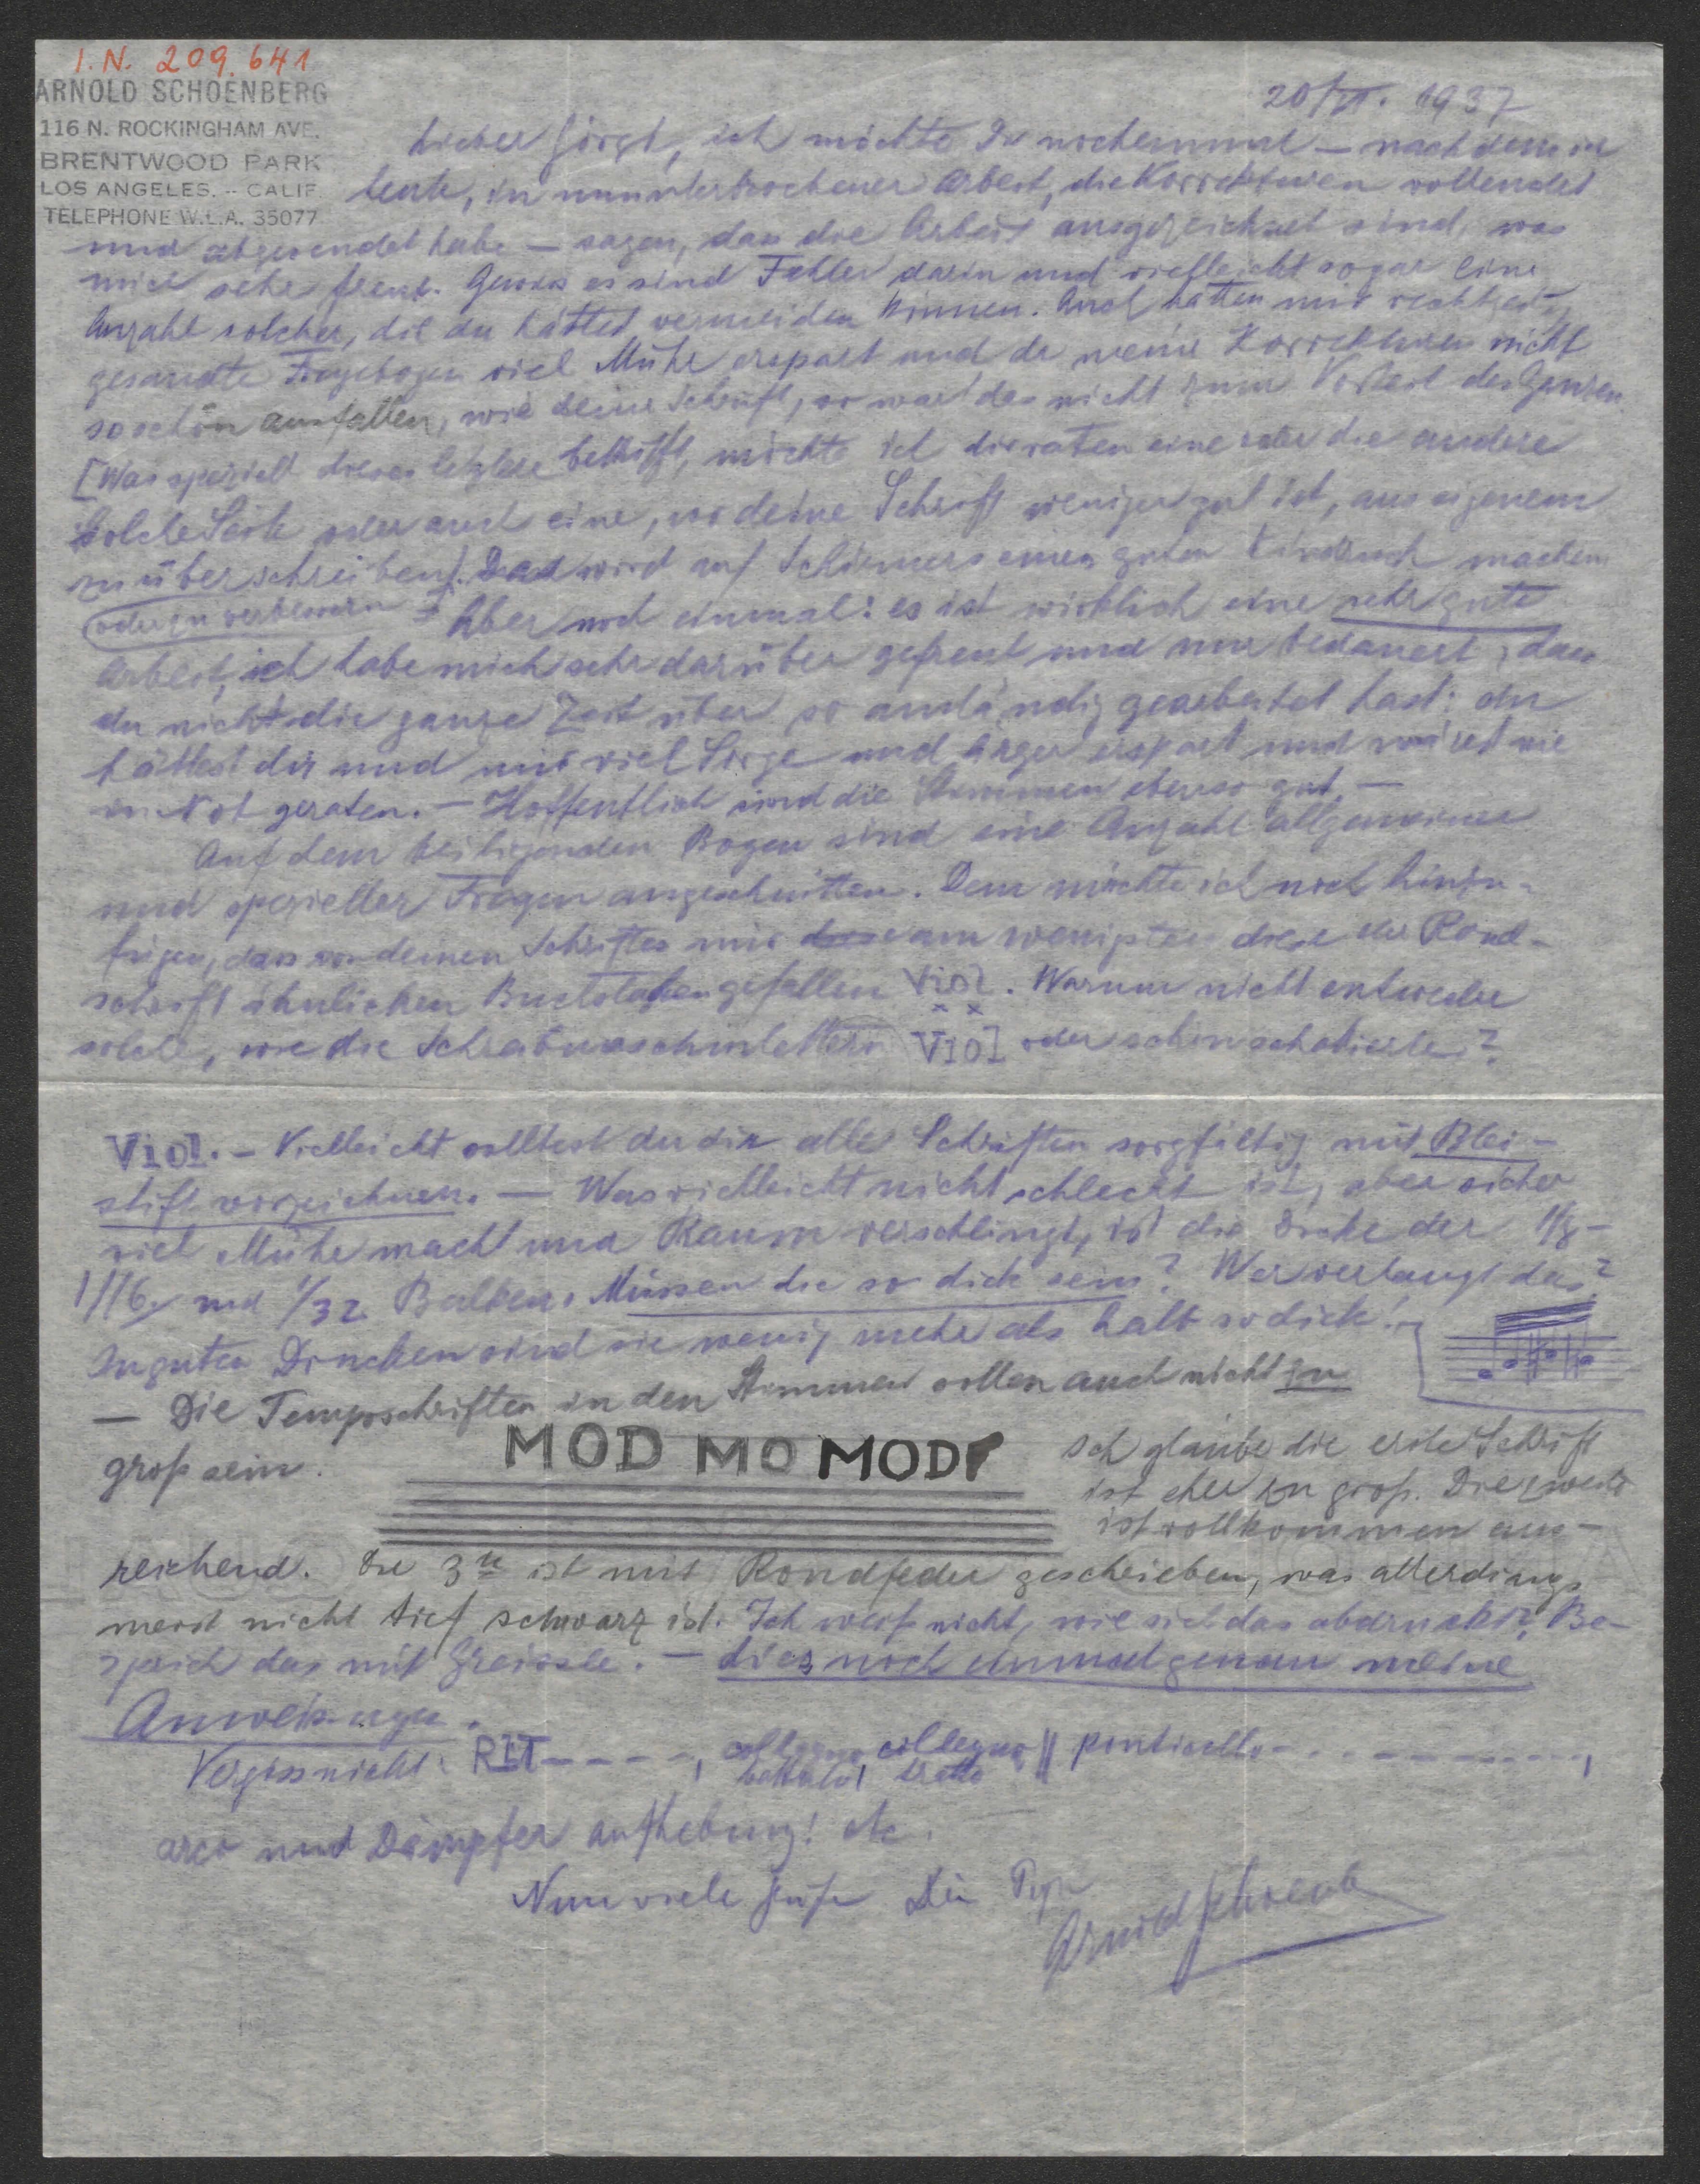 I.N. 209.641
ARNOLD SCHOENBERG
116 N. ROCKINGHAM AVE.
BRENTWOOD PARK
LOS ANGELES. -- CALIF
TELEPHONE W.L.A. 35077
20/VI. 1937
Lieber Görgl, ich möchte Dir nocheinmal — nachdem ich
heute, in ununterbrochener Arbeit, die Korrekturen vollendet
und abgesendet habe — sagen, dass die Arbeit ausgezeichnet sind, was
mich sehr freut. Gewiss es sind Fehler darin und vielleicht sogar eine
Anzahl solcher, die du hättest vermeiden können. Auch hätten mir rechtzeitig
gesandte Fragebogen viel Mühe erspart und da meine Korrekturen nicht
so schön ausfallen, wie deine Schrift, so war das nicht zum Vorteil des Ganzen.
[Was speziell dieses letztere betrifft, möchte ich dir raten eine oder die andere
solche Seite oder auch eine, wo deine Schrift weniger gut ist, aus eigenem
zu überschreiben]. Das wird auf Schirmers einen guten Eindruck machen.
oder zu verbessern
Aber noch einmal: es ist wirklich eine sehr gute
Arbeit, ich habe mich sehr darüber gefreut und nur bedauert, dass
du nicht die ganze Zeit über so anständig gearbeitet hast: du
hättest dir und mir viel Sorge und Ärger erspart und wärest nie
in Not geraten. — Hoffentlich sind die Stimmen ebenso gut. —
Auf dem beiliegenden Bogen sind eine Anzahl allgemeiner
und spezieller Fragen angeschnitten. Dem möchte ich noch hinzu-
fügen, dass von deinen Schriften mir am wenigsten diese der Rond-
schrift ähnlichen Buchstaben gefallen Viol. Warum nicht entweder
solche, wie die Schreibmaschinlettern VIOl oder schön schattierte?
Viol. — Vielleicht solltest du dir alle Schriften sorgfältig mit Blei-
stift vorzeichnen. — Was vielleicht nicht schlecht ist, aber sicher
viel Mühe macht und Raum verschlingt, ist die Dicke der 1/8-
1/16 und 1/32 Balken. Müssen die so dick sein? Wer verlangt das?
In guten Drucken sind sie wenig mehr als halb so dick!
— Die Temposchriften in den Stimmen sollen auch nicht zu
groß sein.
MOD MO MOD
Ich glaube die erste Schrift
ist eher zu groß. Die zweite
ist vollkommen aus-
reichend. Die 3te ist mit Rondfeder geschrieben, was allerdings
meist nicht tief schwarz ist. Ich weiß nicht, wie sich das abdruckt? Be-
sprich das mit Greissle. — Lies noch einmal genau meine
Anweisungen.
Vergiss nicht: RIT- - - - -, col legno battuto, col legno tratto || ponticello - - - - - - - - - -,
arco und Dämpfer aufhebung! etc.
Nun viele Grüße Dein Papa
Arnold Schoenb